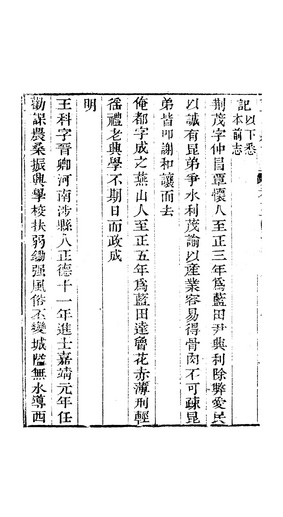 記以下悉本前志
荆茂字仲昌覃懷人至正三年爲藍田尹興利除弊愛民
以誠有昆弟爭水利茂諭以產業容易得骨肉不可疎昆
弟皆叩謝和讓而去
俺都字成之燕山人至正五年爲藍田達魯花赤薄刑輕
徭禮老興學不期日而政成
明
王科字晉卿河南涉縣人正德十一年進士嘉靖元年任
勸課農桑振興學校扶弱鋤强風俗丕變城隍無水導西